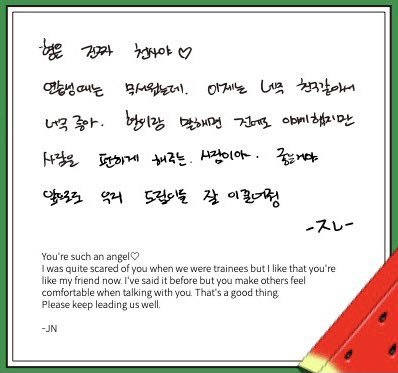 형은 진짜 천사야 ♡
연습생때는 무서웠는데. 이제는 너무 친구같아서
너무 좋아. 형이랑 말하면 전에도 얘기했지만
사람을 편하게 해주는. 사람이야. 좋은거야
앞으로도 우리 드림이들 잘 이끌어줭
-지니-
You're such an angel♡
I was quite scared of you when we were trainees but I like that you're
like my friend now. I've said it before but you make others feel
comfortable when talking with you. That's a good thing.
Please keep leading us well.
-JN